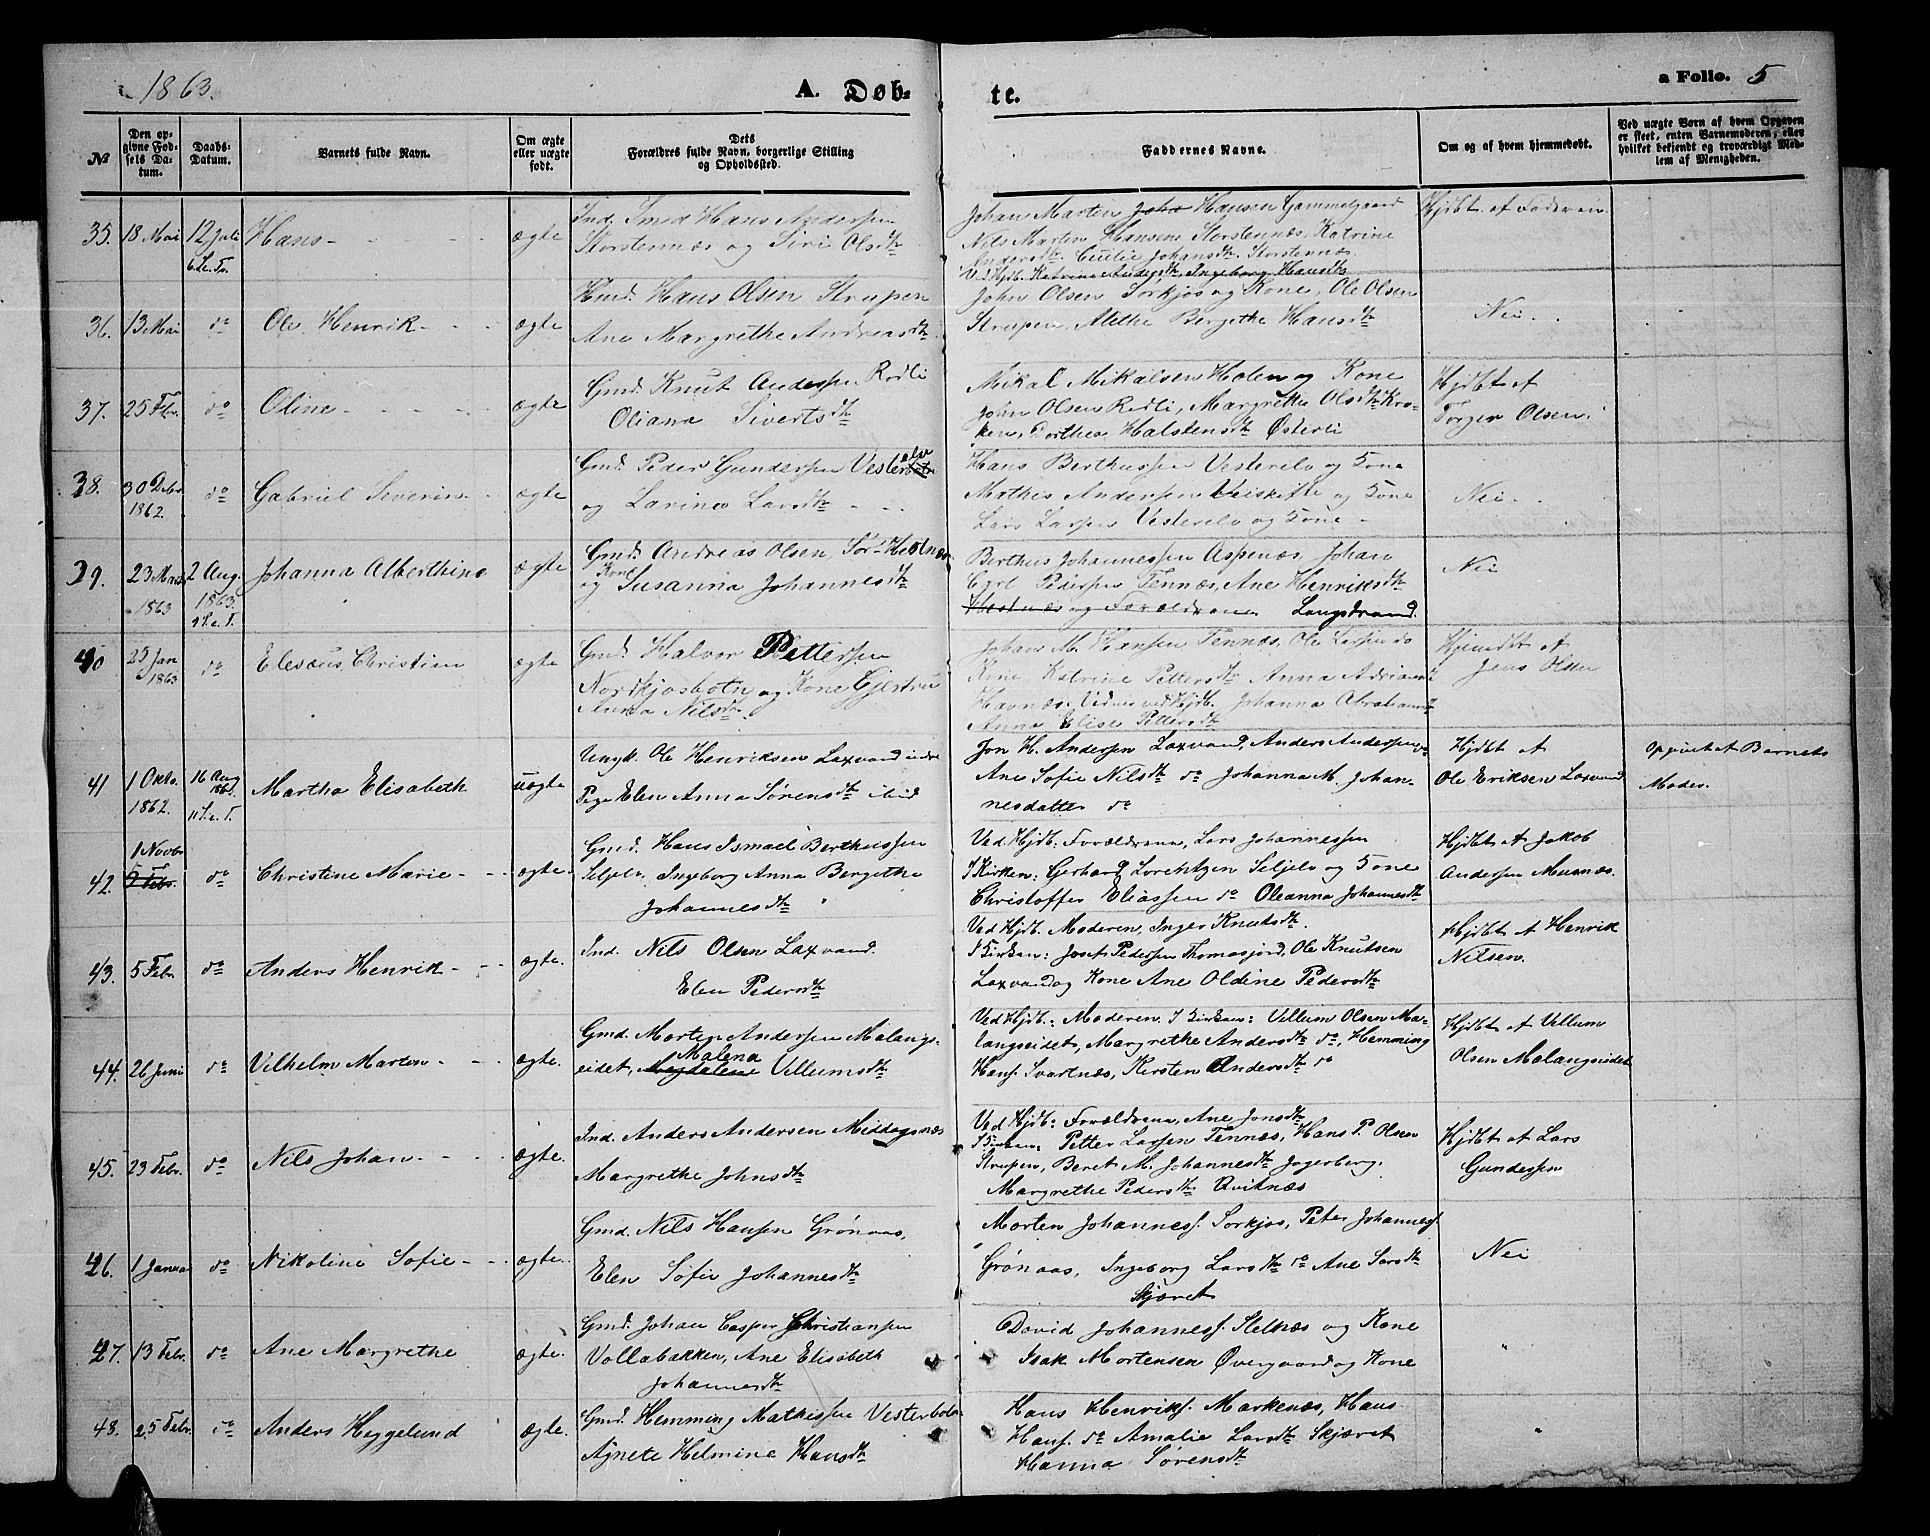 1863.
A. Døb-
te.
a Folio. 5
№
Den op-
givne Fød-
sels Da-
tum.
Daabs-
Datum.
Barnets fulde Navn.
Om ægte
eller uægte
født.
Dets
Forældres fulde Navn, borgerlige Stilling
og Opholdssted.
Faddernes Navne.
Om og af hvem hjemmedøbt.
Ved uægte Børn af hvem Opgaven
er skeet, enten Barnemoderen, eller
hvilket bekjendt og troværdigt Med-
lem af Menigheden.
35. 18 Mai 12 Juli
6 S. e. Tr.
Hans
ægte
Ind. Smed Hans Anderssen
Storstennæs og Siri Olsdtr
Johan Martin Joha Hansen Gammelgaard
Nils Marten Hansen Storstennæs, Katrine
Andersdtr Cecilie Johansdtr Storstennæs
Ved Hjdb. Katrine Andersdtr, Ingeborg Hansdtr
Hjdbt af Faderen
36. 13 Mai do
Ole Henrik
ægte
Hmd. Hans Olsen Strupen
Ane Margrethe Andreasdtr
John Olsen Sørkjos og Kone, Ole Olsen
Strupen, Methe Bergethe Hansdtr
Nei
37. 25 Febr. do
Oline
ægte
Gmd. Knut Anderssen Rødli
Oliana Sivertsdtr
Mikal Mikalsen Holen og Kone
John Olsen Rødli, Margrethe Olsdtr Kro-
ken, Dorthea Halstensdtr Østerli
Hjdbt af
Torger Olsen.
38. 30 Debr
1862. do
Gabriel Severin
ægte
Gmd. Peder Gunderssen Vesterelv
og Lavina Larsdtr
Hans Berthussen Vesterelv og Kone
Mathis Anderssen Veiskifte og Kone
Lars Larssen Vesterelv og Kone
Nei
39. 23 Mai
1863
2 Aug.
1863.
9 S. e. T.
Johanna Alberthine
ægte
Gmd. Andreas Olsen Sør Hestnæs
og Kone Susanna Johannesdtr
Berthus Johannessen Aspenæs, Johan
Carl Pederssen Tennæs, Ane Henriksdtr
Hestnæs og Forældrene Langstrand.
Nei
40 25 Jan
1863 do
Elesæus Christian
ægte
Gmd. Halvor Petterssen
Nordkjosbotn og Kone Gjertru
Anna Nilsdtr
Johan M. Hansen Tennæs, Ole Larssen do
Kone Katrine Pettersdtr Anna Adriansdtr
Havnæs. Vidner ved Hjdb. Johanna Abrahamsdtr
Anne Elise Pettersdtr
Hjemdbt af
Jens Olsen
41 1 Oktb.
1862.
16 Aug
11 S. e. T.
Martha Elisabeth
uægte
Ungk. Ole Henriksen Laxvand indre
Pige Elen Anna Sørensdtr ibid
Jon H. Andersen Laxvand, Anders Anderssen do
Ane Sofie Nilsdtr do Johanna M. Johan-
nesdatter do
Hjdbt af
Ole Eriksen Laxvand
Opgivet af Barnets
Moder.
42. 1 Novbr
9 Febr. do
Christine Marie
ægte
Gmd. Hans Ismael Berthussen
Seljelv, Ingeborg Anna Bergethe
Johannesdtr
Ved Hjdb. Forældrene, Lars Johannessen
I Kirken: Gerhard Lorchtzen Seljelv og Kone
Christoffer Eliassen do Oleanna Johannesdtr
Hjdbt af Jakob
Anderssen Meenæs.
43. 5 Febr. do
Anders Henrik
ægte.
Ind. Nils Olsen Laxvand.
Elen Pedersdtr
Ved Hjdb. Moderen, Inger Knutsdtr.
I Kirken: Josef Pederssen Thomasjord, Ole Knutsen
Laxvand og Kone Ane Oldine Pedersdtr
Hjdbt af Henrik
Nilsen.
44. 26 Juni do
Vilhelm Marten
ægte.
Gmd. Morten Anderssen Malangs-
eidet, Magdalene Malena Villumsdtr
Ved Hjdb.: Moderen. I Kirken: Villum Olsen Ma-
langseidet, Margrethe Andersdtr do, Hemming
Hans. Svartnæs, Kirsten Andersdtr do
Hjdbt af Villum
Olsen Malangseidet
45. 23 Febr. do
Nils Johan
ægte.
Ind. Anders Andersen Middagsnæs
Margrethe Johnsdtr
Ved Hjdb: Forældrene, Ane Jonsdtr
I Kirken: Petter Larssen Tennæs, Hans P. Olsen
Strupen, Beret M. Johannesdtr Jagerberg.
Margrethe Pedersdtr Kviknæs
Hjdbt af Lars
Gunderssen
46. 1 Januar do
Nikoline Sofie
ægte.
Gmd. Nils Hanssen Grønaas,
Elen Sofie Johannesdtr
Morten Johanness. Sørkjos, Peter Johanness.
Grønaas, Ingeborg Larsdtr do Ane Larsdtr
Skjæret
Nei
47. 13 Febr. do
Ane Margrethe
ægte.
Gmd. Johan Casper Christianssen
Vollabakken, Ane Elisabeth
Johannesdtr
David Johanness. Slettnæs og Kone
Isak Mortensen Øvergaard og Kone
"
48. 25 Febr. do
Anders Heggelund
ægte.
Gmd. Hemming Mathissen Vesterbotn
Agnete Helmine Hansdtr
Hans Henriks. Markenæs, Hans
Hans. do Amalie Larsdtr Skjæret
Hanna Sørensdtr
"